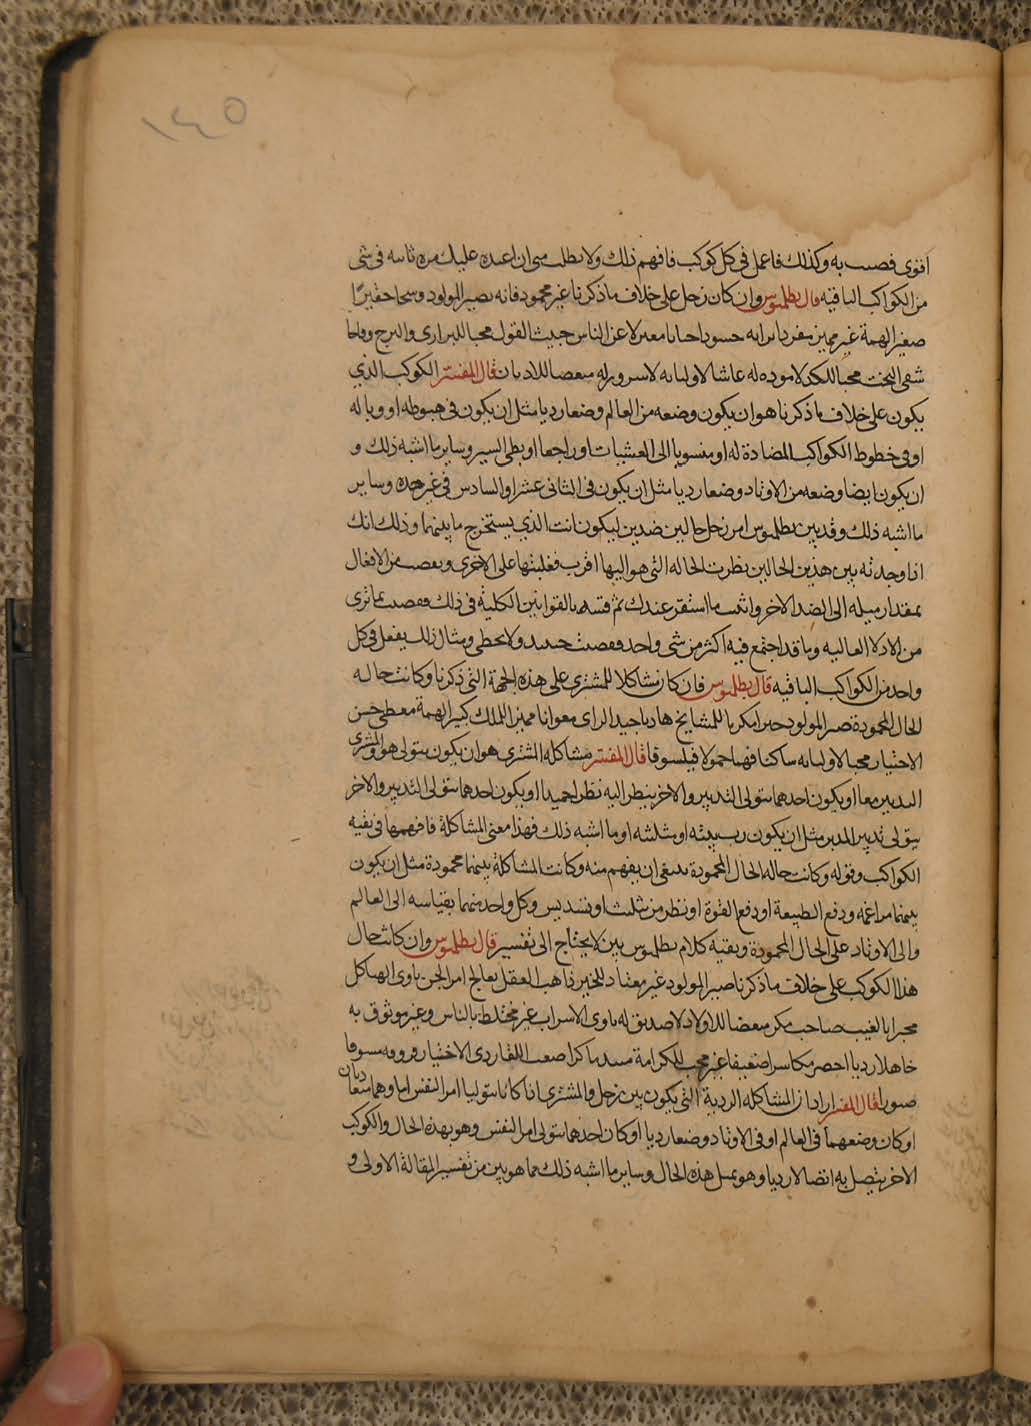 اقوى فصب به وكذلك فاعمل فى كل كوكب فافهم ذلك ولا تطلب منى ان اعيده عليك مره ثانيه فى شى
من الكواكب الباقيه قال بطلميوس وان كان زحل على خلاف ما ذكرنا غير محمود فانه يصير المولود وسخا حقيرًا
صغير الهمة غير مميز منفردا برايه حسودا جبانا معتزلا عن الناس خبيث القول محبا للبرارى والبرح وقاحا
شقى البخت محبا للكد لا موده له غاشا لاوليايه لا سرور له مبغضا للابدان قال المفسر الكوكب الذي
يكون على خلاف ما ذكرنا هو ان يكون وضعه من العالم وضعا رديا مثل ان يكون فى هبوطه او وباله
او فى حظوظ الكواكب المضادة له او منسوبا الى العشيات او راجعا او بطى السير وساير ما اشبه ذلك و
ان يكون ايضا وضعه من الاوتاد وضعا رديا مثل ان يكون فى الثانى عشر او السادس فى غير حده وساير
ما اشبه ذلك وقد بين بطلميوس امر زحل حالين ضدين ليكون انت الذي يستخرج ما بينهما وذلك انك
اذا وجدته بين هذين الحالين نظرت الحاله التى هو اليها اقرب فغلبتها على الاخرى ونقصت من الافعال
بمقدار ميله الى الضد الاخر واثبت ما استقر عندك ثم قسته بالقوانين الكلية فى ذلك وقضيت بما ترى
من الادلا العاليه وما قد اجتمع فيه اكثر من شى واحد فقضيت حينيذ ولا تخطى ومثال ذلك يفعل فى كل
واحد من الكواكب الباقيه قال بطلميوس فان كان مشاكلا للمشترى على هذه الجهة التى ذكرنا وكانت حاله
الحال المحمودة صير المولود خيرا مكرما للمشايخ هاديا جيد الراى معوانا مميزا للملك كبير الهمة معطى حسن
الاختيار محبا لاوليايه ساكنا فهما حمولا فيلسوفا قال المفسر مشاكله المشترى هو ان يكون يتولى هو والمشترى
التدبير معا او يكون احدهما يتولى التدبير والاخر ينظر اليه نظرا حميدا او يكون احدهما يتولى التدبير والاخر
يتولى تدبير المدبر مثل ان يكون رب بيته او مثلثه او ما اشبه ذلك فهذا معنى المشاكلة فافهمها فى بقيه
الكواكب وقوله وكانت حاله الحال المحمودة ينبغى ان يفهم منه وكانت المشاكلة بينهما محمودة مثل ان يكون
بينهما مراغمه ودفع الطبيعة او دفع القوة او نظر من تثليث او تسديس وكل واحد منهما بقياسه الى العالم
والى الاوتاد على الحال المحمودة وبقيه كلام بطلميوس بين لا يحتاج الى تفسير قال بطلميوس وان كانت حال
هذا الكوكب على خلاف ما ذكرنا صير المولود غير معتاد للخير ذاهب العقل يعالج امر الجن ياوى الهياكل
مخبرا بالغيب صاحب مكر مبغضا للاولاد لا صديق له ياوى الاسراب غير مختلط بالناس وغير موثوق به
جاهلا رديا احصر مكاسرا ضعيفا غير محب للكرامة صعب اللقا ردى الاختيار
صبورا قال المفسر اراد ان المشاكله الردية التى يكون بين زحل والمشترى اذا كانا يتوليا امر النفس اما وهما متعاديان
او كان وضعهما فى العالم او فى الاوتاد وضعا رديا او كان احدهما يتولى امر النفس وهو بهذه الحال والكوكب
الاخر يتصل به اتصالا رديا وهو بمثل هذه الحال وساير ما اشبه ذلك مما هو بين من تفسير المقالة الاولى و